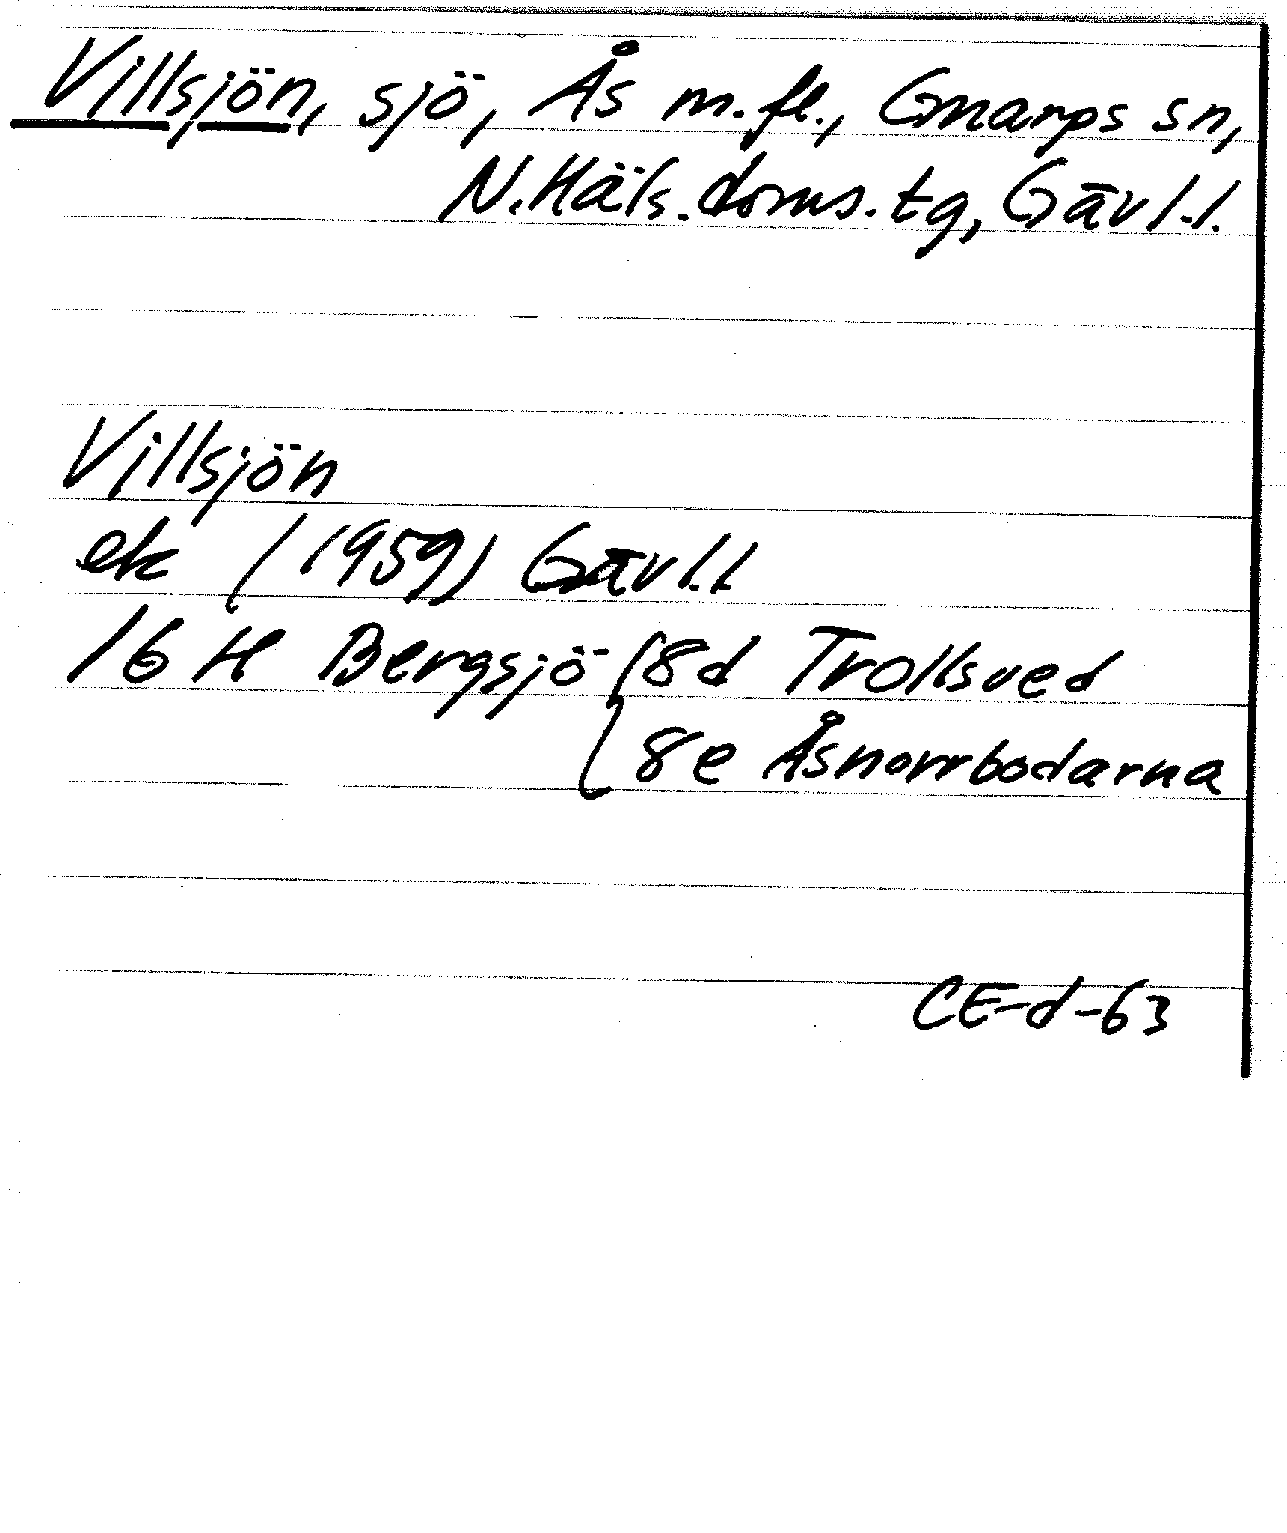 Villsjön, sjö, Ås m.fl., Gnarps sn,
N.Häls.doms.tg, Gävl.l.
Villsjön
ek (1959) Gävl.l
16 H Bergsjö 8d Trollsved
8e Åsnorrbodarna
CE-d-63